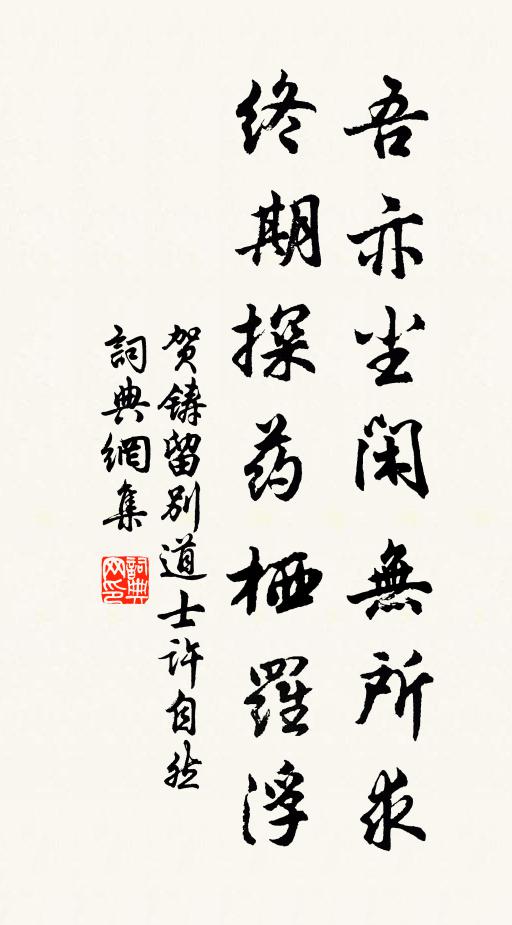 吾亦尘闲無所求
终期探药栖羅浮
贺鑄留别道士许自然
詞典網集
詞典网印